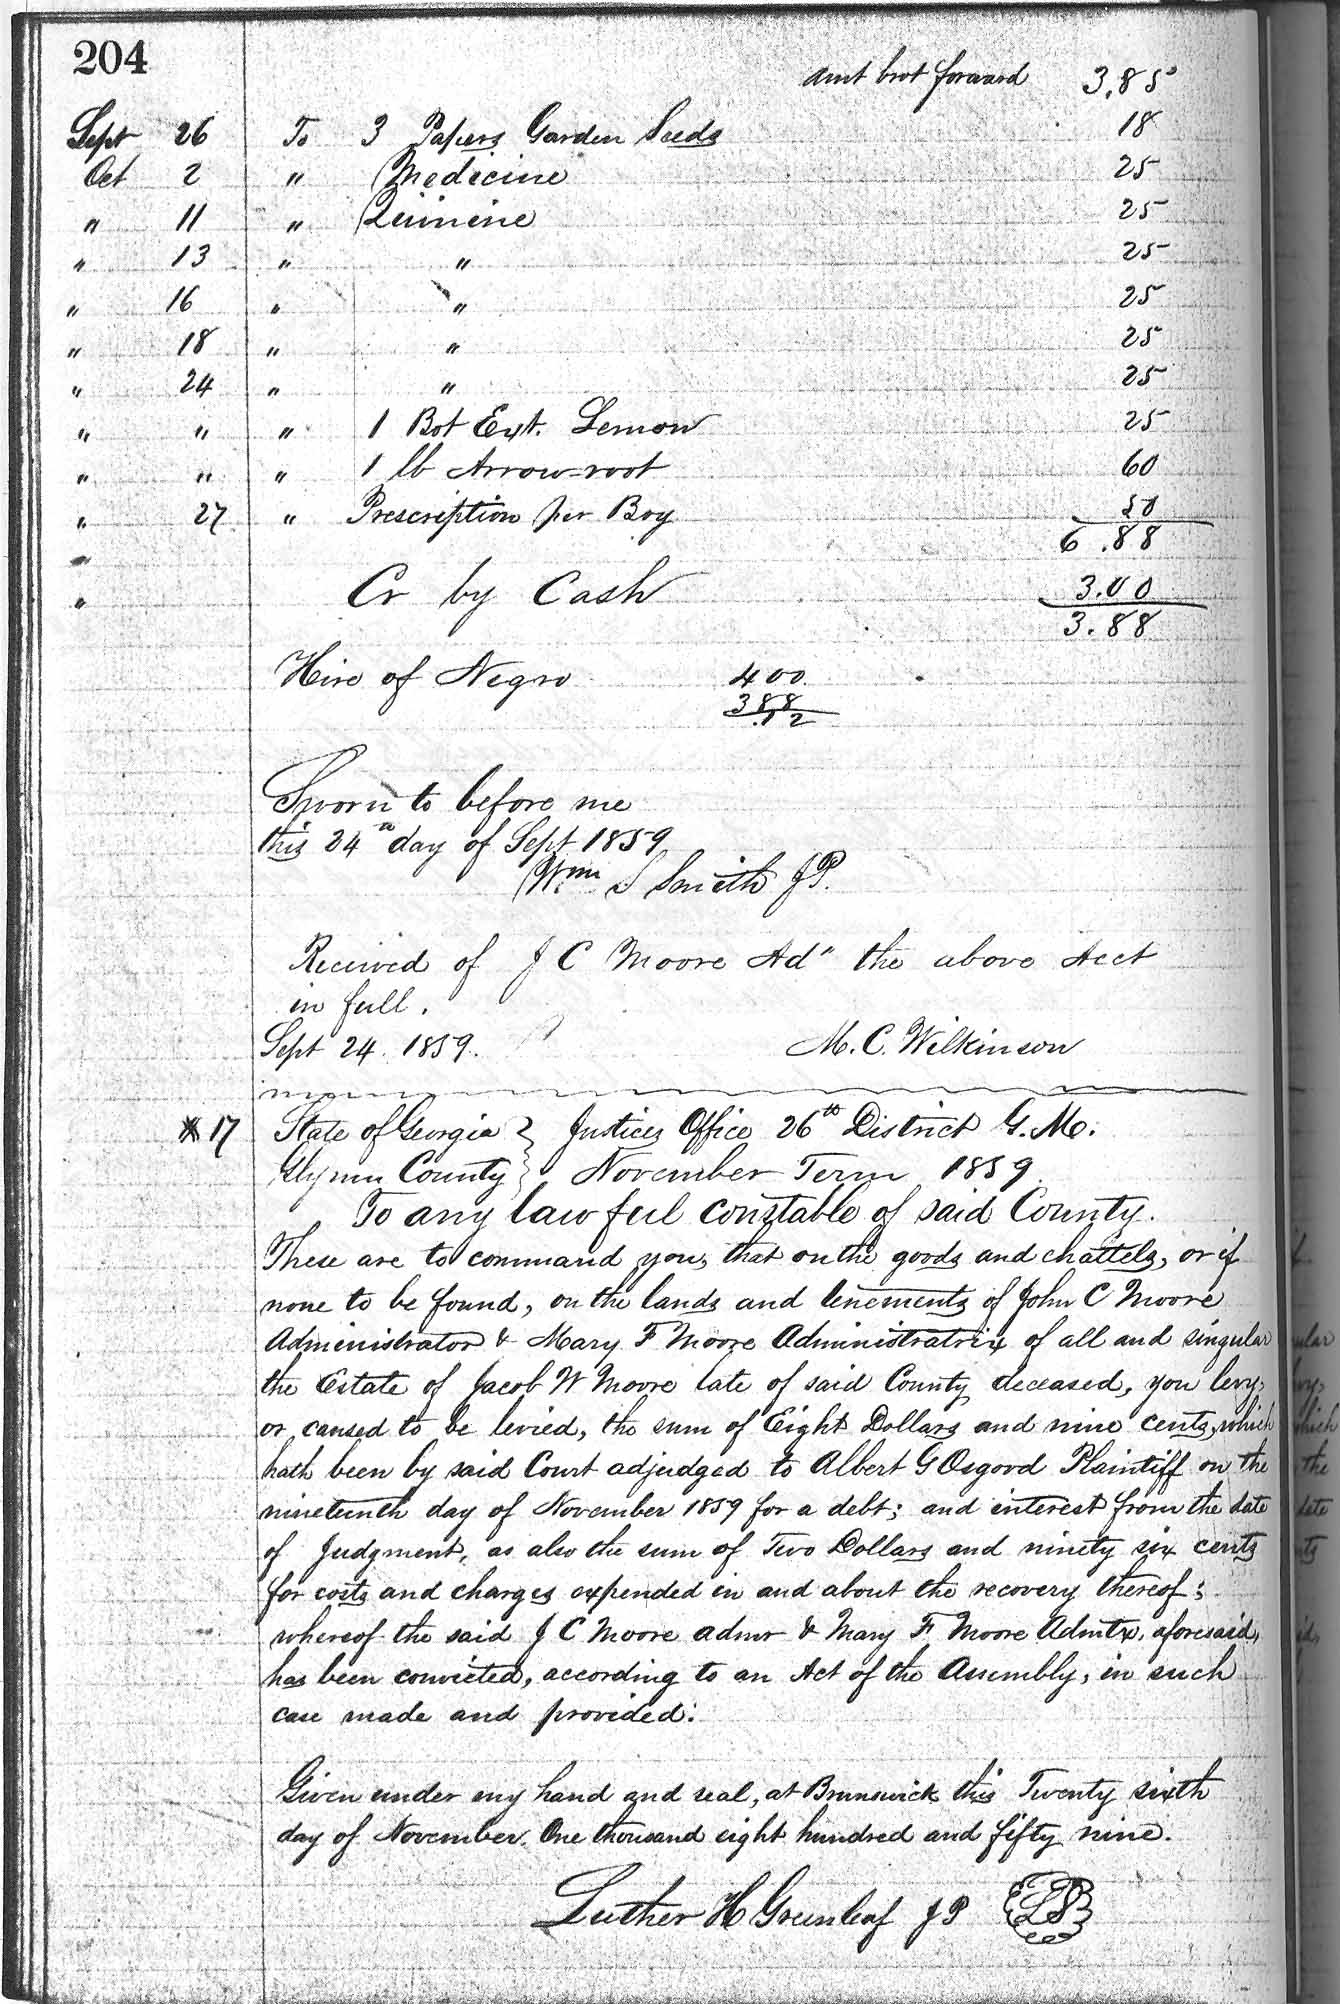 204
amt brot forward 3.85
Sept 26 To 3 Papers Garden Seeds 18
Oct 2 " Medicine 25
" 11 " Quinine 25
" 13 " " 25
" 16 " " 25
" 18 " " 25
" 24 " " 25
" " " 1 Bot Ext. Lemon 25
" " " 1 lb Arrow-root 60
" 27 " Prescription per Boy 50
" 6.88
" Cr by Cash 3.00
3.88
Hire of Negro 400
388
.12
Sworn to before me
this 24th day of Sept 1859
Wm S Smith J P.
Received of J C Moore Adr the above Acct
in full.
Sept 24. 1859. M. C. Wilkinson
17 State of Georgia } Justices Office 26th District G. M.
Glynn County } November Term 1859.
To any lawful constable of said County.
These are to command you, that on the goods and chattels, or if
none to be found, on the lands and tenements of John C Moore
Administrator & Mary F Moore Administratrix of all and singular
the Estate of Jacob W Moore late of said County deceased, you levy,
or caused to be levied, the sum of Eight Dollars and nine cents, which
hath been by said Court adjudged to Albert G Osgood Plaintiff on the
nineteenth day of November 1859 for a debt; and interest from the date
of Judgment, as also the sum of Two Dollars and ninety six cents
for costs and charges expended in and about the recovery thereof;
whereof the said J C Moore admr & Mary F Moore Admtx, aforesaid,
has been convicted, according to an Act of the Assembly, in such
case made and provided.
Given under my hand and seal, at Brunswick this Twenty sixth
day of November. One thousand eight hundred and fifty nine.
Luther H Greenleaf J P LS